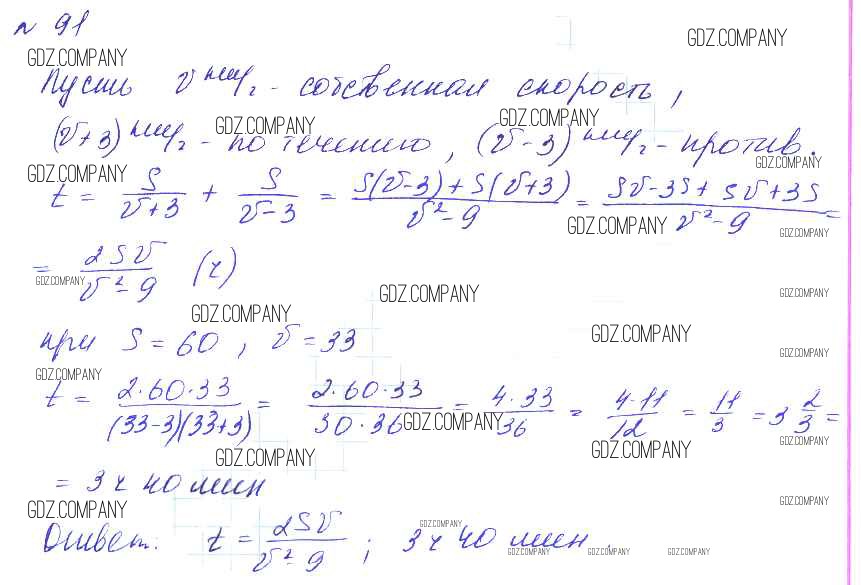 № 91
GDZ.COMPANY GDZ.COMPANY
Пусть v км/ч - собственная скорость,
(v+3) км/ч - по течению, (v-3) км/ч - против.
GDZ.COMPANY GDZ.COMPANY GDZ.COMPANY
GDZ.COMPANY
t = S/(v+3) + S/(v-3) = (S(v-3)+S(v+3))/(v²-9) = (Sv-3S+Sv+3S)/(v²-9) =
GDZ.COMPANY GDZ.COMPANY
= 2Sv/(v²-9) (ч)
GDZ.COMPANY GDZ.COMPANY GDZ.COMPANY
GDZ.COMPANY GDZ.COMPANY
при S = 60, v = 33
GDZ.COMPANY
GDZ.COMPANY
t = (2·60·33)/((33-3)(33+3)) = (2·60·33)/(30·36) = (4·33)/36 = (4·11)/12 = 11/3 = 3 2/3 =
GDZ.COMPANY GDZ.COMPANY
GDZ.COMPANY GDZ.COMPANY
= 3 ч 40 мин
GDZ.COMPANY GDZ.COMPANY
GDZ.COMPANY
Ответ: t = 2Sv/(v²-9); 3 ч 40 мин.
GDZ.COMPANY GDZ.COMPANY GDZ.COMPANY